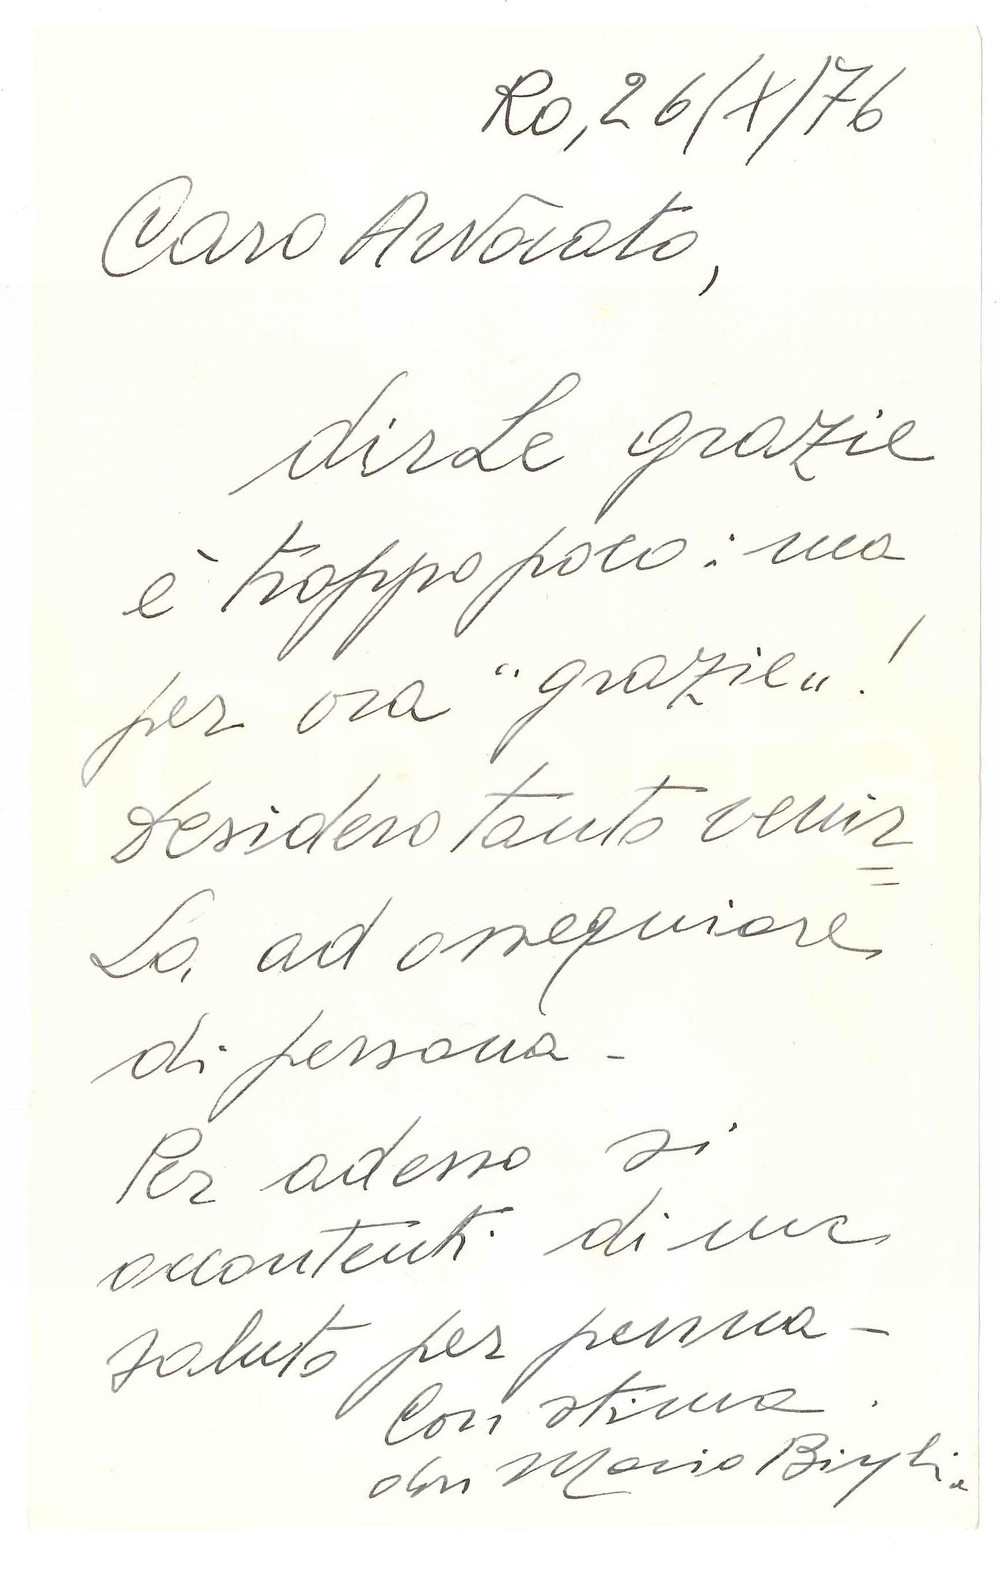 Ro, 26/X/76
Caro Avvocato,
dirLe grazie
è troppo poco: ma
per ora "grazie"!
Desidero tanto venir=
La ad ossequiare
di persona -
Per adesso si
accontenti di un
saluto per penna -
Con stima.
don Mario